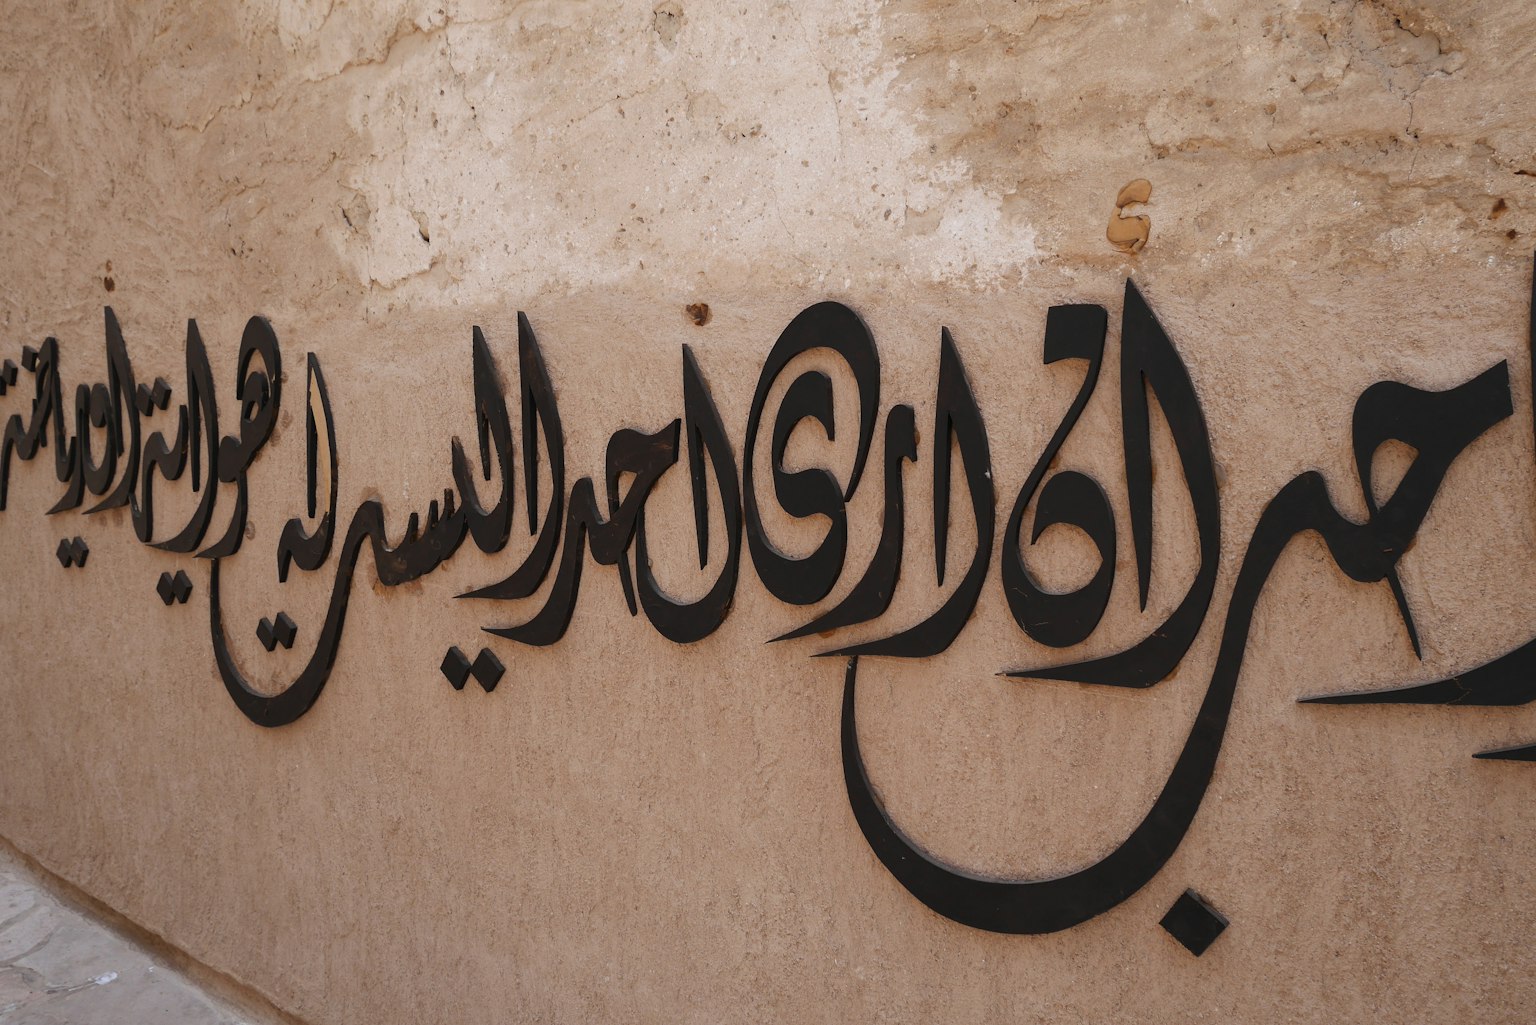 أحب أن أرى أحدا ليس لديه هواية أو رياضة